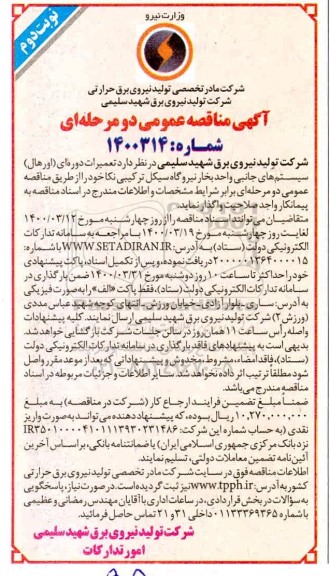 وزارت نیرو
نوبت دوم
شرکت مادر تخصصی تولید نیروی برق حرارتی
شرکت تولید نیروی برق شهید سلیمی
آگهی مناقصه عمومی دو مرحله‌ای
شماره: ۱۴۰۰۳۱۴
شرکت تولید نیروی برق شهید سلیمی در نظر دارد تعمیرات دوره‌ای (اورهال)
سیستم‌های جانبی واحد بخار نیروگاه سیکل ترکیبی نکا خود را از طریق مناقصه
عمومی دو مرحله‌ای برابر شرایط مشخصات و اطلاعات مندرج در اسناد مناقصه به
پیمانکار واجد صلاحیت واگذار نماید.
متقاضیان می‌توانند اسناد مناقصه را از روز چهارشنبه مورخ ۱۴۰۰/۰۳/۱۲
لغایت روز چهارشنبه مورخ ۱۴۰۰/۰۳/۱۹ با مراجعه به سامانه تدارکات
الکترونیکی دولت (ستاد) به آدرس: WWW.SETADIRAN.IR با شماره:
۲۰۰۰۰۰۱۳۶۴۰۰۰۰۱۵ دریافت نموده و پس از تکمیل اسناد، پاکت پیشنهادی
خود را حداکثر تا ساعت ۱۰ روز دوشنبه مورخ ۱۴۰۰/۰۳/۳۱ ضمن بارگذاری در
سامانه تدارکات الکترونیکی دولت (ستاد)، فقط پاکت «الف» را به صورت فیزیکی
به آدرس: ساری، بلوار آزادی، خیابان ورزش، انتهای کوچه شهید عباس مددی
(ورزش ۲) شرکت تولید نیروی برق شهید سلیمی ارسال نمایند. کلیه پیشنهادات
واصله رأس ساعت ۱۱ همان روز در سالن جلسات شرکت بازگشایی خواهد شد.
بدیهی است به پیشنهادهای فاقد بارگذاری در سامانه تدارکات الکترونیکی دولت
(ستاد)، فاقد امضاء، مشروط، مخدوش و پیشنهاداتی که بعد از موعد مقرر واصل
شود مطلقا ترتیب اثر داده نخواهد شد. سایر اطلاعات و جزئیات مربوطه در اسناد
مناقصه مندرج می‌باشد.
ضمناً مبلغ تضمین فرایند ارجاع کار (شرکت در مناقصه) به مبلغ
۱۰,۲۷۰,۰۰۰,۰۰۰ ریال بوده، که پیشنهاد دهنده می‌تواند به صورت واریز
نقدی به حساب شماره این شرکت:
نزد بانک مرکزی جمهوری اسلامی ایران) یا ضمانتنامه بانکی، بر اساس آخرین
آئین‌نامه تضمین معاملات دولتی، تسلیم نمایند.
اطلاعات مناقصه فوق در سایت شرکت مادر تخصصی تولید نیروی برق حرارتی
کشور به آدرس: www.tpph.ir نیز ثبت گردیده است. در صورت نیاز، پاسخگویی
به سؤالات در بخش قراردادی، در ساعات اداری با آقایان مهندس رمضانی و عظیمی
با شماره ۰۱۱۳۳۳۶۹۳۶۵ داخلی ۳۱ و ۲۱ تماس حاصل فرمائید.
شرکت تولید نیروی برق شهید سلیمی
امور تدارکات